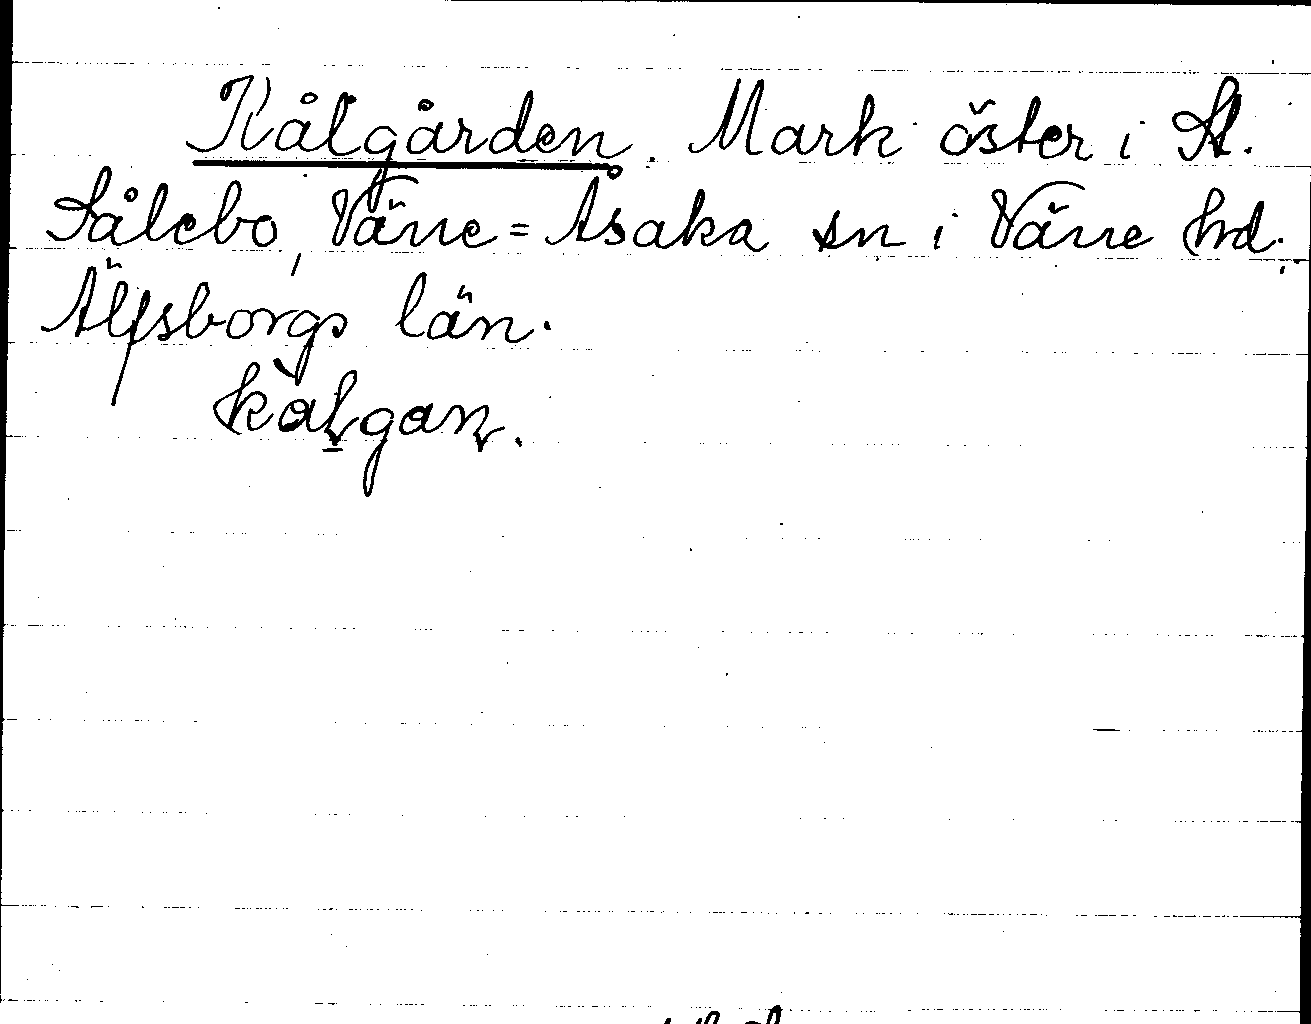 Kålgården. Mark öster i St.
Sålebo, Väne=Åsaka sn i Väne hd.
Älfsborgs län.
kàlgan.